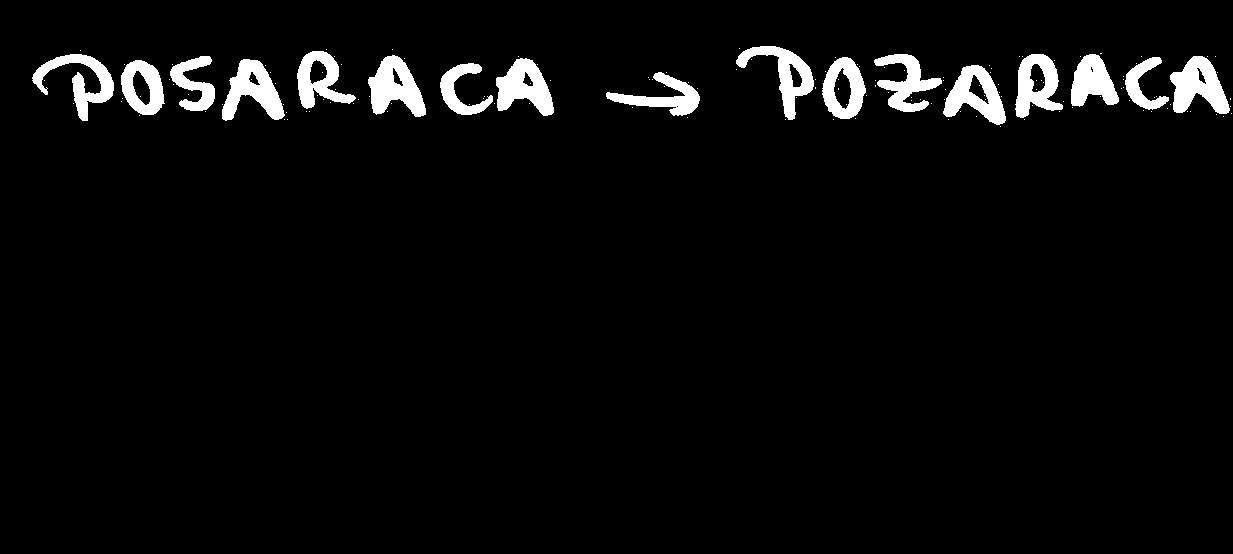 POSARACA → POZARACA